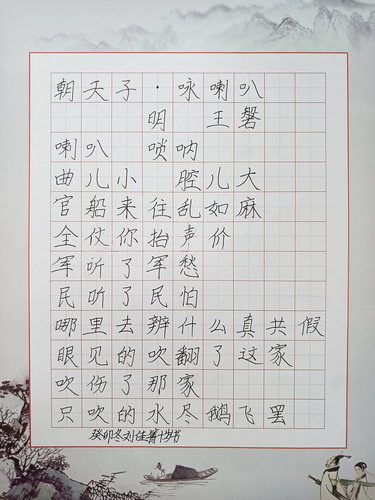 朝天子·咏喇叭
明 王磐
喇叭 唢呐
曲儿小 腔儿大
官船来往乱如麻
全仗你抬声价
军听了军愁
民听了民怕
哪里去辨什么真共假
眼见的吹翻了这家
吹伤了那家
只吹的水尽鹅飞罢
癸卯冬刘佳箐十岁书